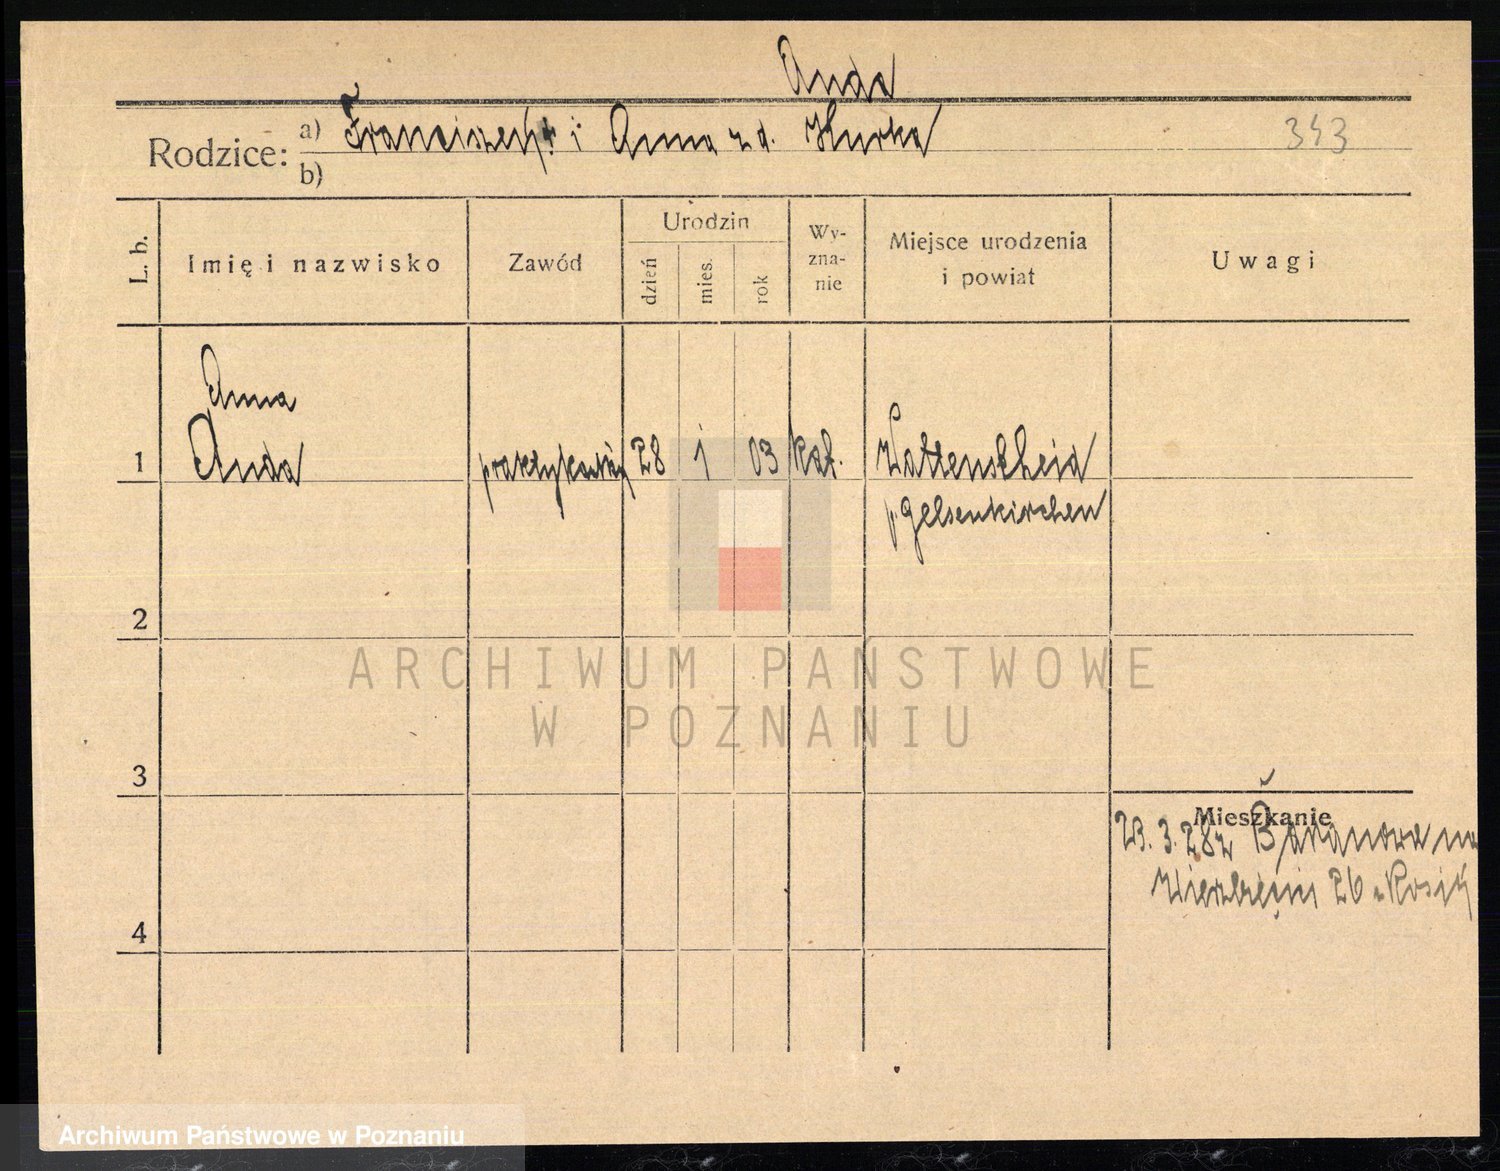 Anda
Rodzice: a) Franciszek † i Anna z d. Hurka 343
b)
L. b. Imię i nazwisko Zawód Urodzin dzień mies. rok Wy-zna-nie Miejsce urodzenia i powiat Uwagi
Anna
1 Anda 28 1 03 kat. Wattenscheid
p. Gelsenkirchen
2
ARCHIWUM PAŃSTWOWE
W POZNANIU
3
Mieszkanie
23. 3. 28 z Baranowa
Wierzbięcic 26
4
Archiwum Państwowe w Poznaniu